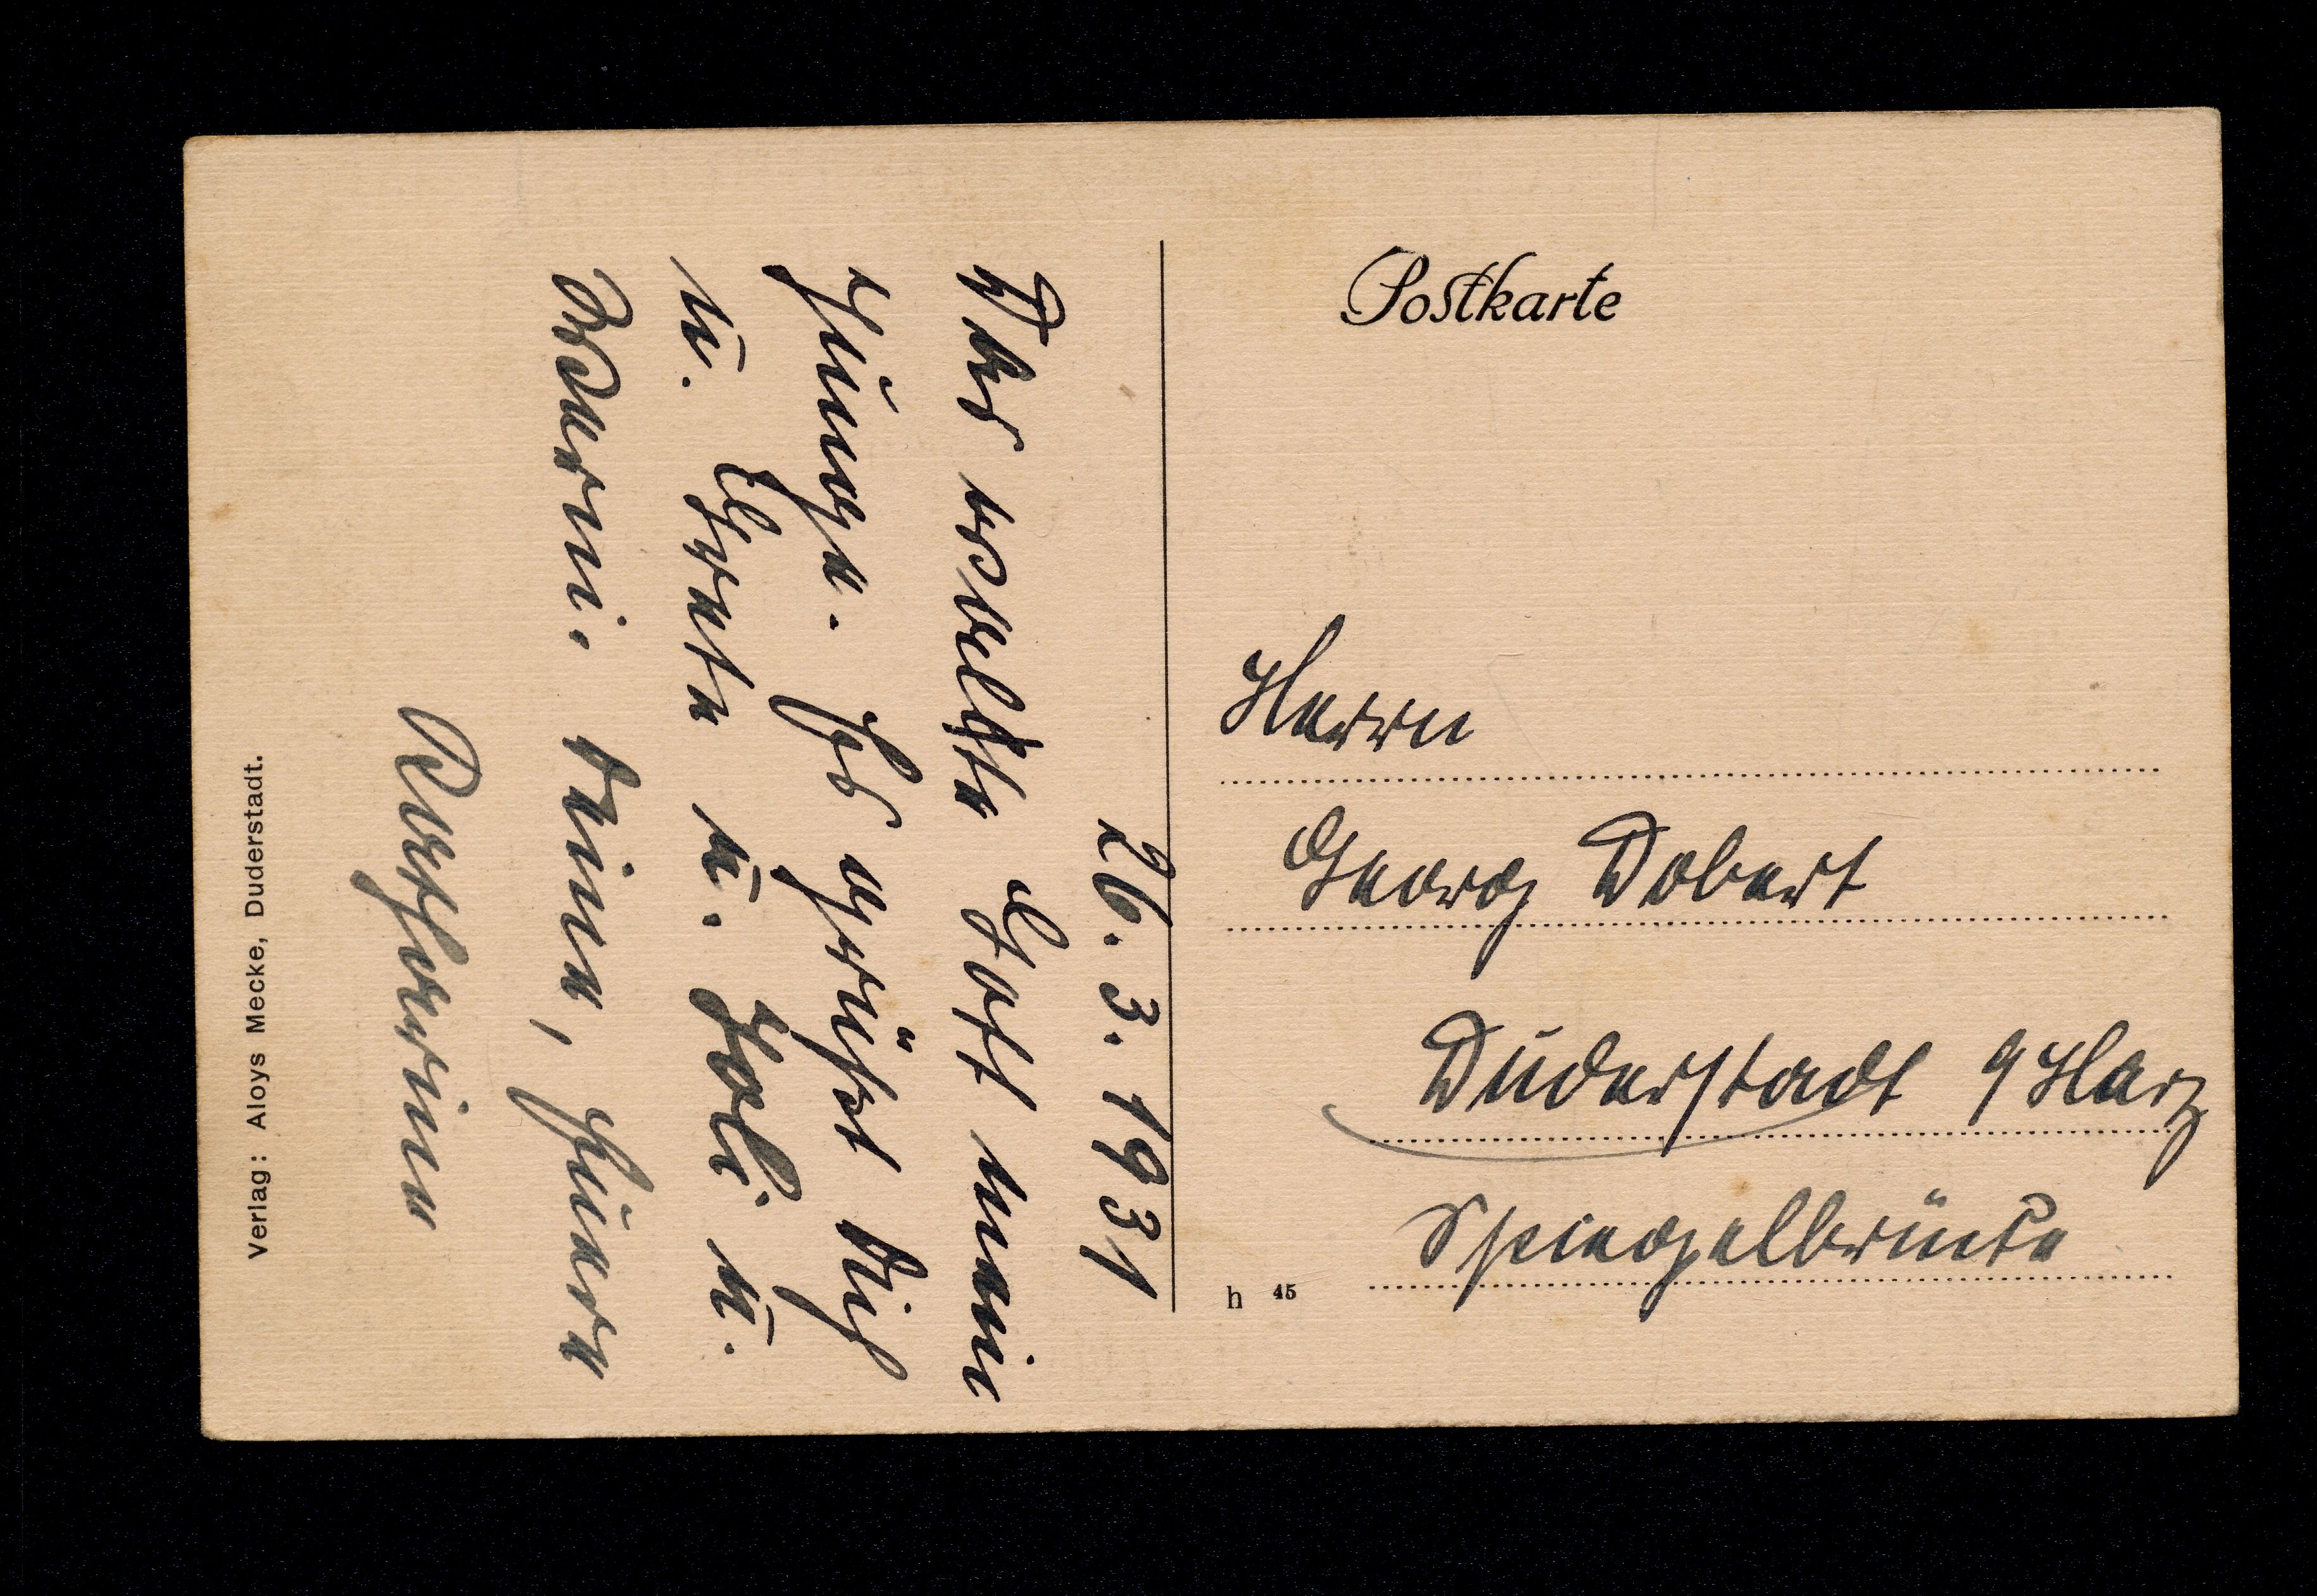 Postkarte
Herrn
Georg Dobert
Duderstadt a/Harz
Spiegelbrücke
h 45
26. 3. 1931
Das walte Gott mein
Junge. Es grüßt dich
u. Grete u. Joli u.
deine,
Katharine
Verlag: Aloys Mecke, Duderstadt.